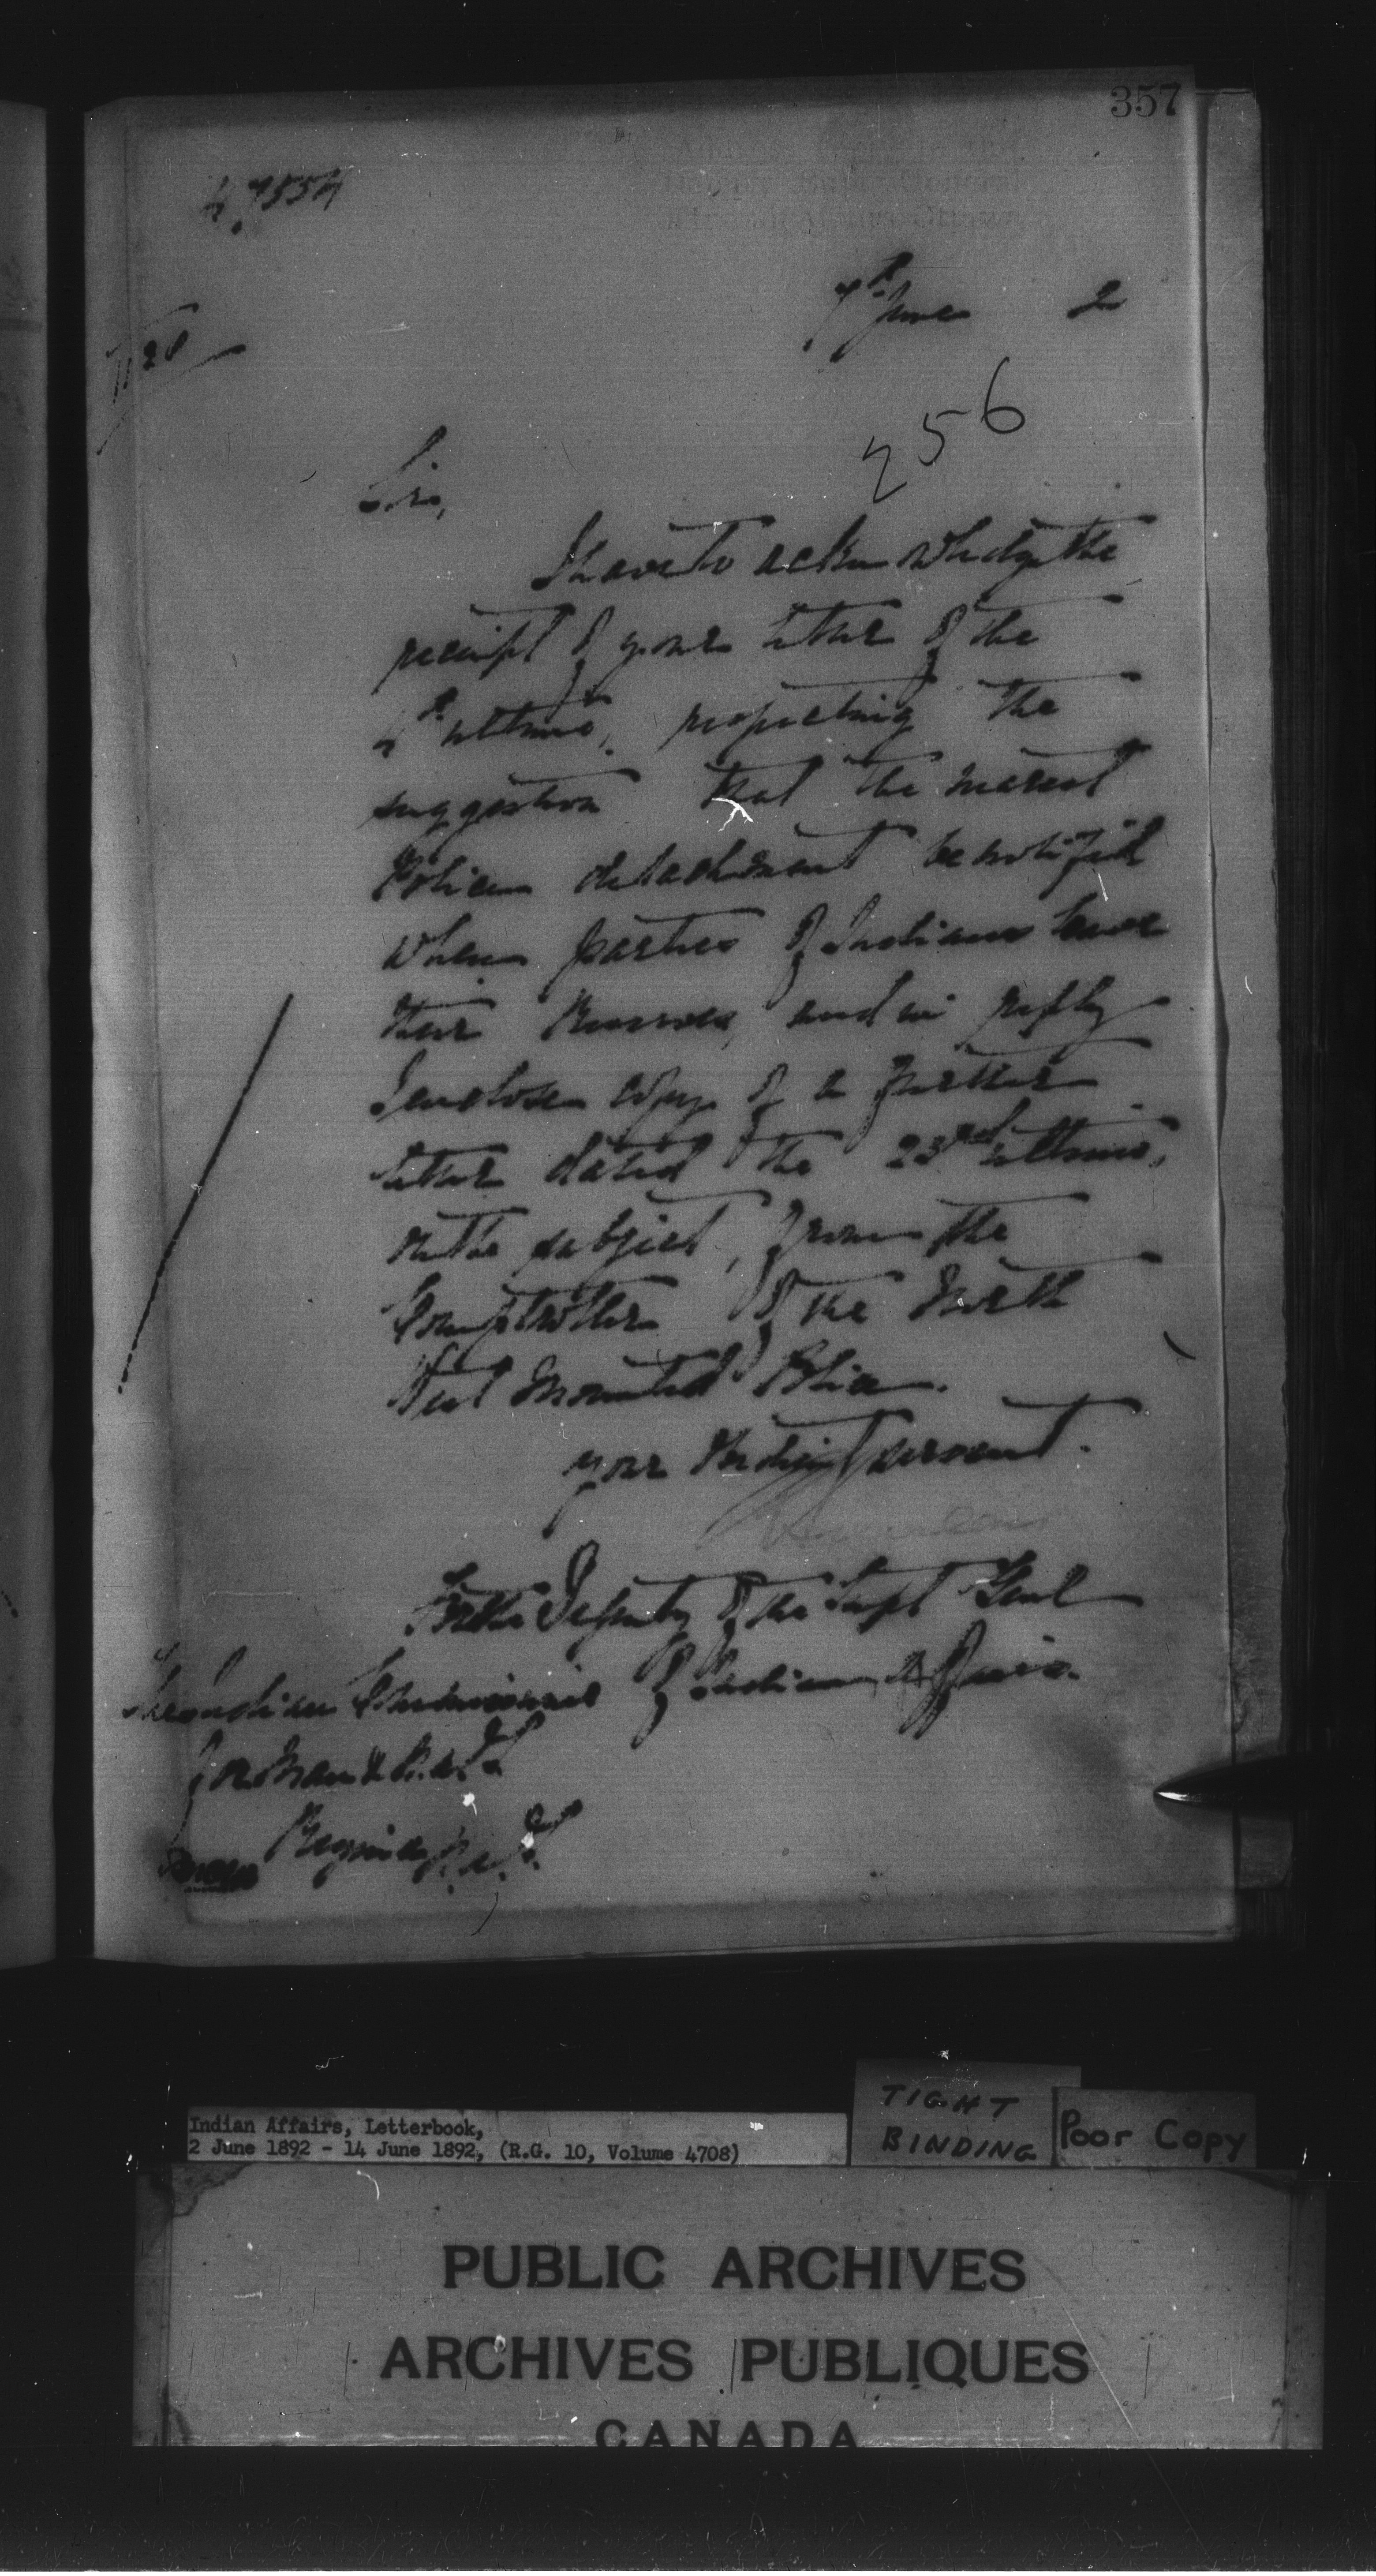 357
7th June 2
256
Sir,
I have to acknowledge the
receipt of your letter of the
4th ultimo, respecting the
suggestion that the nearest
Police detachment be notified
when parties of Indians leave
their Reserves, and in reply
I enclose copy of a further
letter dated the 23rd ultimo,
on the subject, from the
Comptroller of the North
West Mounted Police.
your obedient servant.
For the Deputy of the Supt Genl
of Indian Affairs.
The Indian Commissioner
for Man & N.W.T.
Regina, N.W.T.
Indian Affairs, Letterbook,
2 June 1892 - 14 June 1892, (R.G. 10, Volume 4708)
TIGHT
BINDING
Poor Copy
PUBLIC ARCHIVES
ARCHIVES PUBLIQUES
CANADA